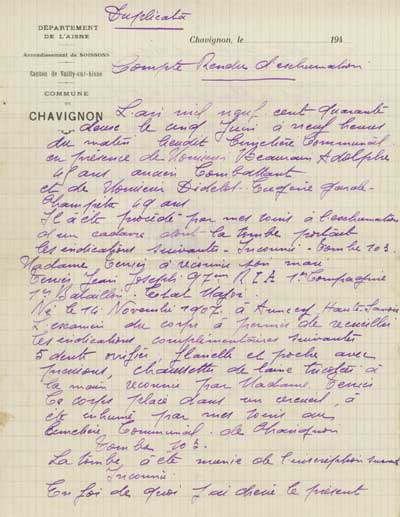 Duplicata
DÉPARTEMENT
DE L'AISNE
Arrondissement de SOISSONS
Canton de Vailly-sur-Aisne
COMMUNE
DE
CHAVIGNON
Chavignon, le 194
Compte Rendu d'exhumation
L'an mil neuf cent quarante
deux le Juin à neuf heures
du matin Cimetière Communal
en présence de Monsieur Beaurain Adolphe
41 ans ancien Combattant
et de Monsieur Didelet Eugène garde-
Champêtre 49 ans
Il à été procédé par mes soins à l'exhumation
d'un cadavre dont la tombe portait
les indications suivantes - Inconnu - Tombe 103.
Madame à reconnu son mari
Jean Joseph 97em R I A 1re Compagnie
1er Bataillon Etat Major.
Né le 14 Novembre 1907 à Annecy Haute Savoie
L'examen du corps à permis de recueillir
les indications complémentaires suivantes
5 dents orifiées, flanelle et poche avec
pressions, chaussettes de laine tricotées à
la main reconnue par Madame
Ce corps placé dans un cercueil, à
été inhumé par mes soins au
Cimetière Communal de Chavignon
Tombe 103.
La tombe à été munie de l'inscription
Inconnu.
En foi de quoi j'ai dressé le présent